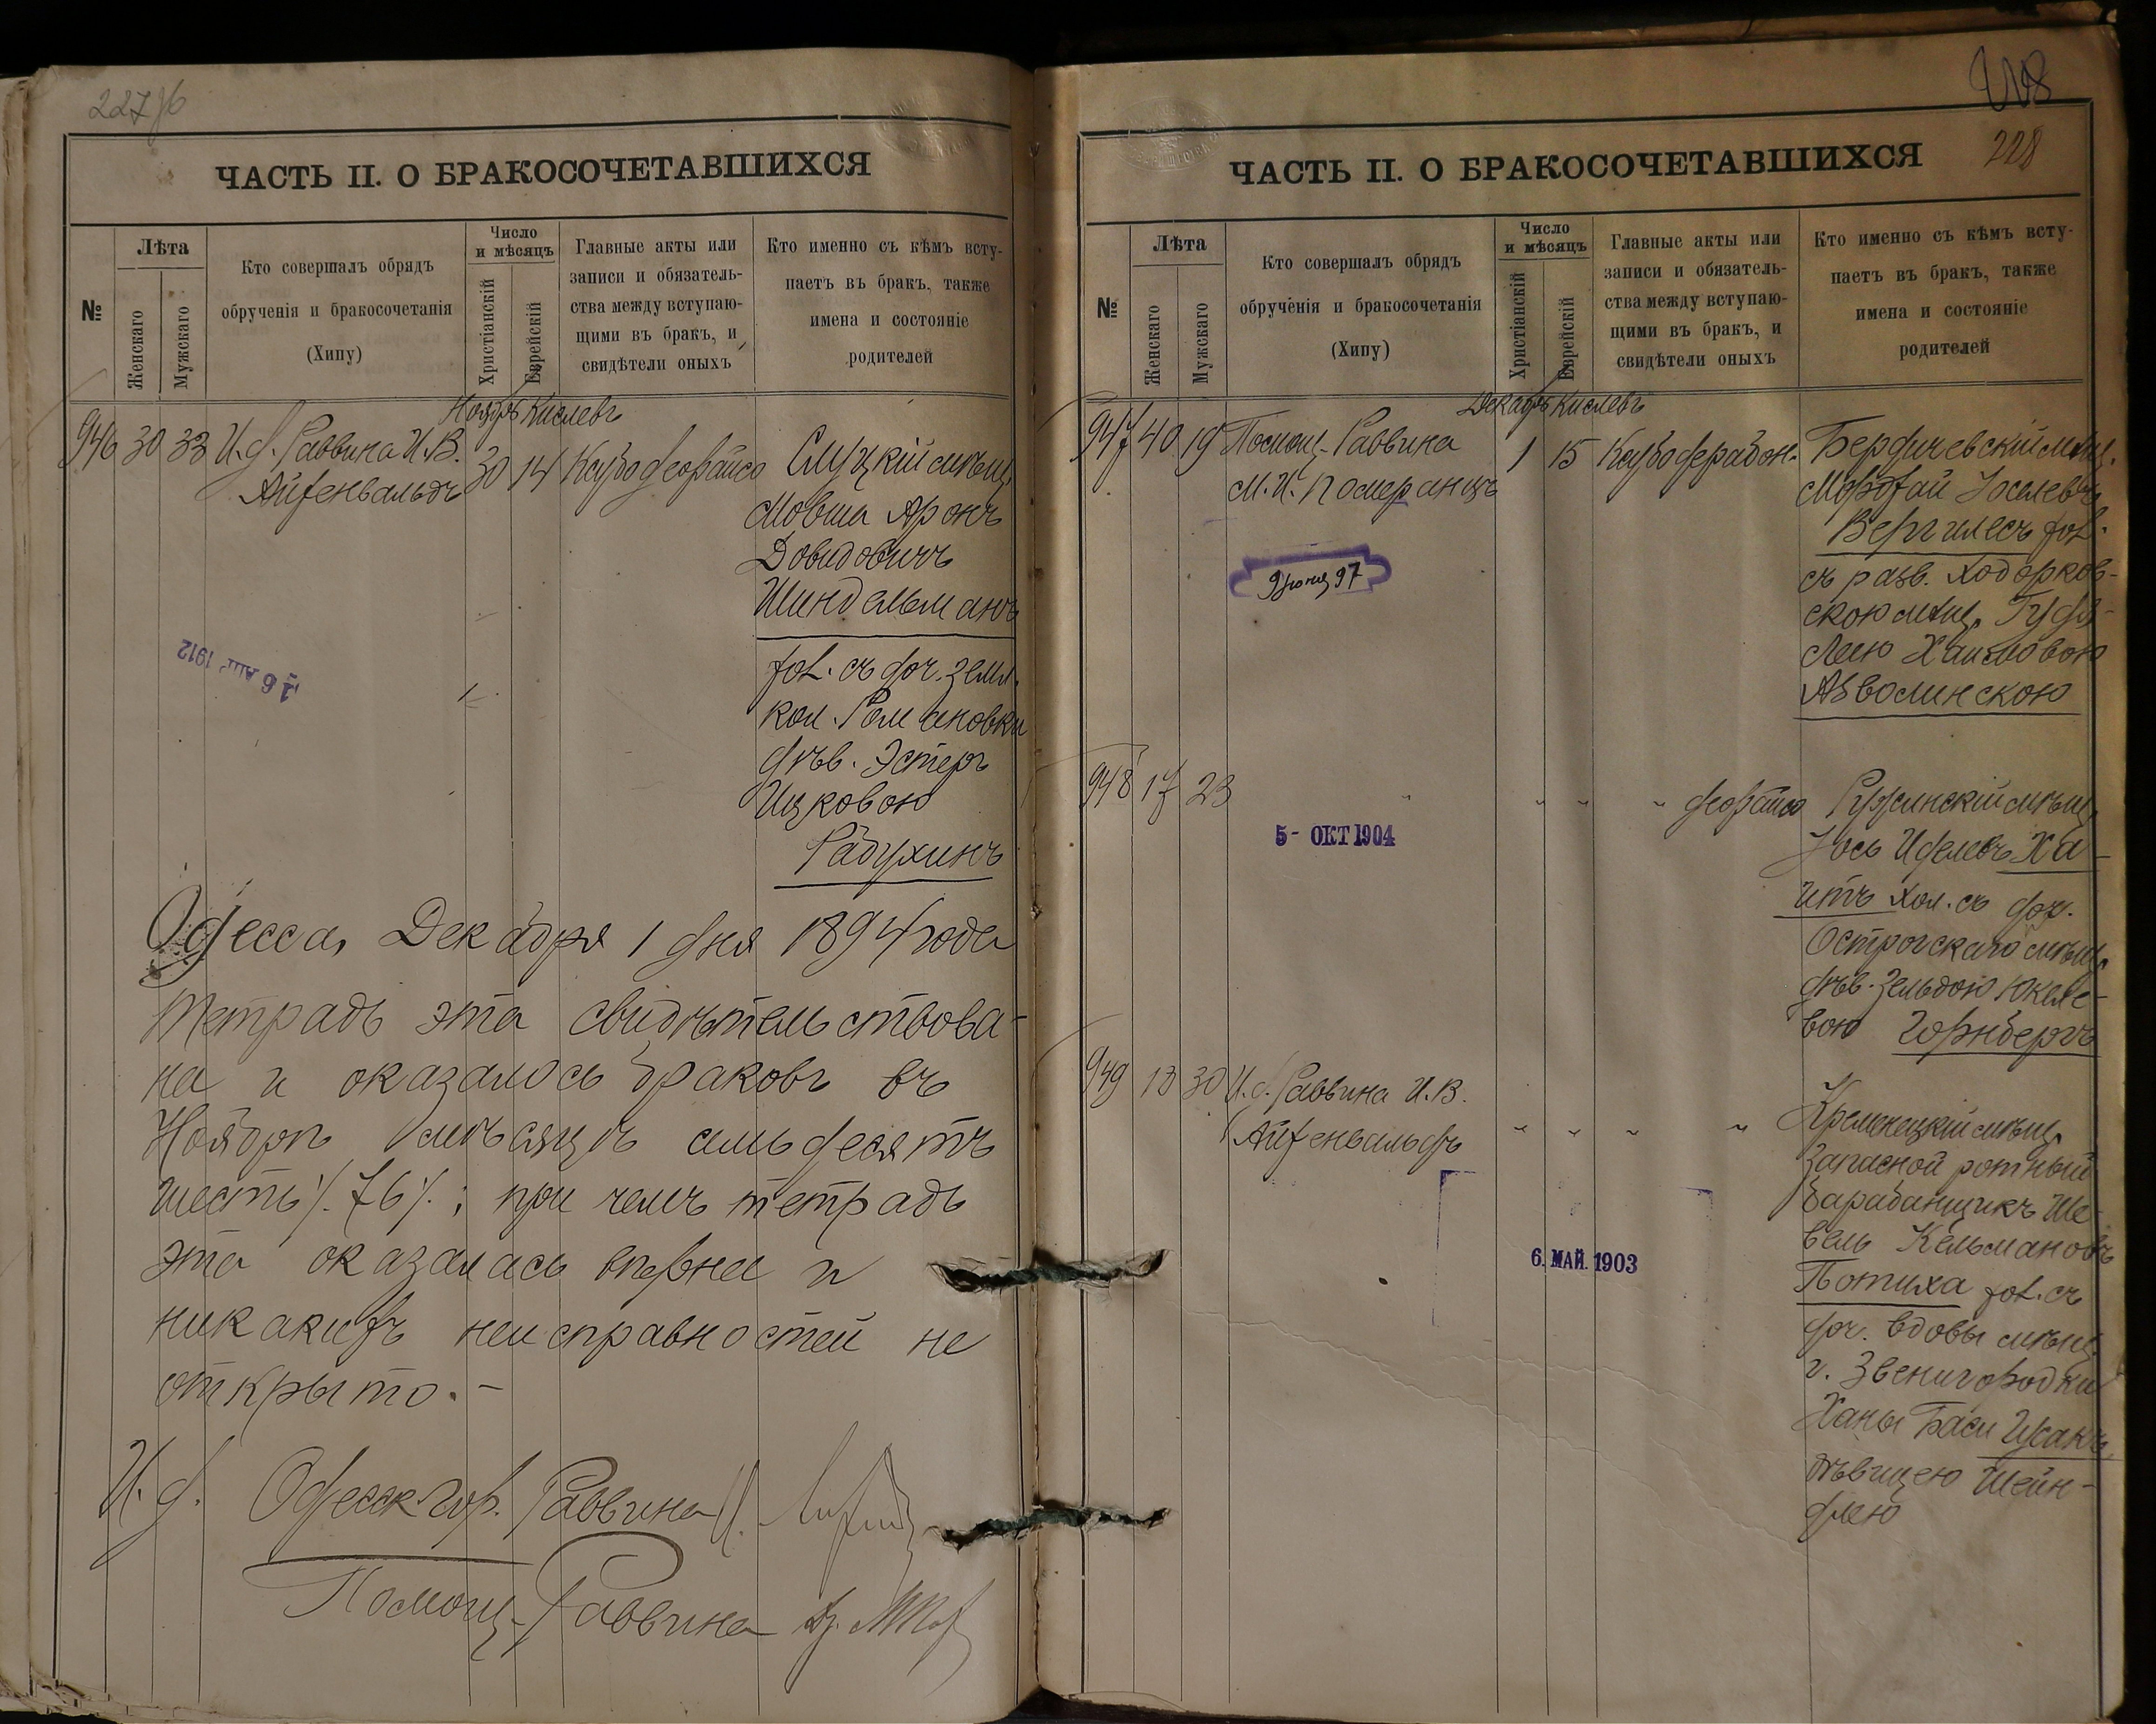 ЧАСТЬ II. О БРАКОСОЧЕТАВШИХСЯ
№
Лѣта
Женскаго
Мужскаго
Кто совершалъ обрядъ
обрученія и бракосочетанія
(Хипу)
Число
и мѣсяцъ
Христіанскій
Еврейскій
Главные акты или
записи и обязатель-
ства между вступаю-
щими въ бракъ, и
свидѣтели оныхъ
Кто именно съ кѣмъ всту-
паетъ въ бракъ, также
имена и состояніе
родителей
Ноябрь Кислевъ
946 30 33 И.д. Раввина И.В.
Айхенвальдъ
30 14
Слуцкій мѣщ.
Мовша Аронъ
Довидовичъ
Шиндельманъ
хол. съ доч. земл.
кол. Романовки
дѣв. Эстеръ
Ицковою
Радухинъ
1912
Одесса, Декабря 1 дня 1894 года
Тетрадь эта свидѣтельствова-
на и оказалось браковъ въ
Ноябрѣ мѣсяцѣ семьдесятъ
шесть /. 76 /.; при чемъ тетрадь
эта оказалась вѣрна и
никакихъ неисправностей не
открыто. -
И. д. Одесск. гор. Раввина
Помощ. Раввина
228
ЧАСТЬ II. О БРАКОСОЧЕТАВШИХСЯ
№
Лѣта
Женскаго
Мужскаго
Кто совершалъ обрядъ
обрученія и бракосочетанія
(Хипу)
Число
и мѣсяцъ
Христіанскій
Еврейскій
Главные акты или
записи и обязатель-
ства между вступаю-
щими въ бракъ, и
свидѣтели оныхъ
Кто именно съ кѣмъ всту-
паетъ въ бракъ, также
имена и состояніе
родителей
Декабрь Кислевъ
947 40 19 Помощ. Раввина
М.И. Померанцъ
1 15
Бердичевскій мѣщ.
Мордхай Іоселевъ
Вергилесъ хол.
съ разв. Ходорков-
скою мѣщ.
Леею Хаимовою
Азволинскою
948 17 23 " " " "
5 - ОКТ 1904
Ружинскій мѣщ.
Іось Иделевъ Ха-
итъ хол. съ доч.
Острогскаго мѣщ.
дѣв. Зельдою Юкеле-
вою Горнбергъ
949 30 И.д. Раввина И.В.
Айхенвальдъ
" " " "
6. МАЙ. 1903
Кременецкій мѣщ.
Запасной ротный
барабанщикъ Ше-
вель Кельмановъ
Потиха хол. съ
доч. вдовы мѣщ.
г. Звенигородки
Ханы Баси Гусакъ,
дѣвицею Шейн-
длею